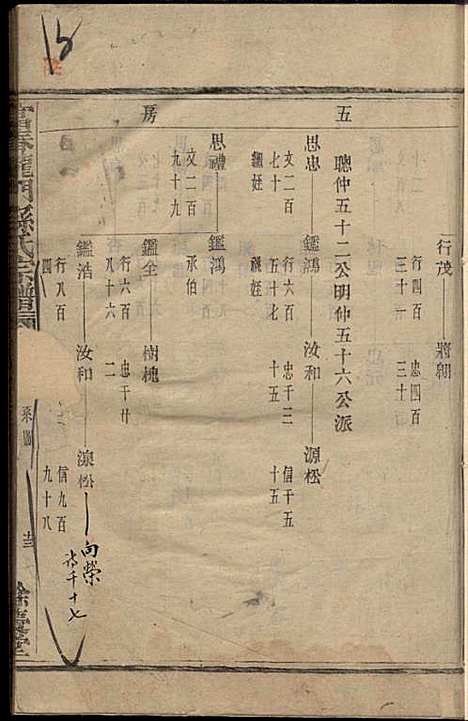 15
五
房
行茂——將朝
行四百三十一
忠四百三十
聰仲五十二公明仲五十六公派
思忠——鑑鴻——汝和——源松
文二百七十
繼姪
行六百五十七
祧姪
忠千三十五
信千五十五
思禮——鑑鴻
文二百九十九
承伯
鑑全——樹槐
行六百八十六
忠千廿二
鑑浩——汝和——源松——向榮
行八百四
信九百九十八
詩千十七
富春龍門孫氏宗譜
系圖
餘慶堂